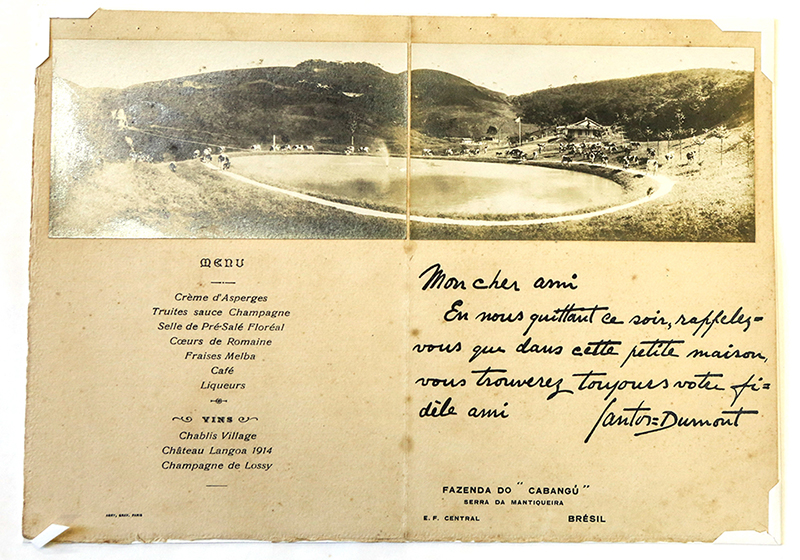 MENU
Crème d'Asperges
Truites sauce Champagne
Selle de Pré-Salé Floréal
Cœurs de Romaine
Fraises Melba
Café
Liqueurs
VINS
Chablis Village
Château Langoa 1914
Champagne de Lossy
Mon cher ami
En nous quittant ce soir, rappelez=
vous que dans cette petite maison,
vous trouverez toujours votre fi=
dèle ami Santos=Dumont
FAZENDA DO "CABANGÚ"
SERRA DA MANTIQUEIRA
E. F. CENTRAL BRÉSIL